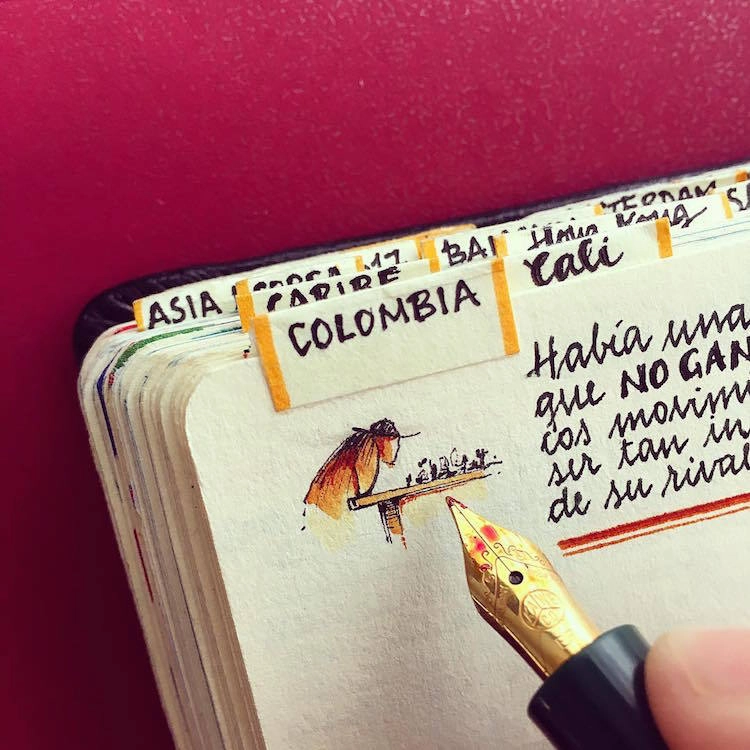 TERDAM
SA
Hong Kong
ASIA
CARIBE
Cali
COLOMBIA
Había una
que NO GAN
cos movim
ser tan in
de su rival